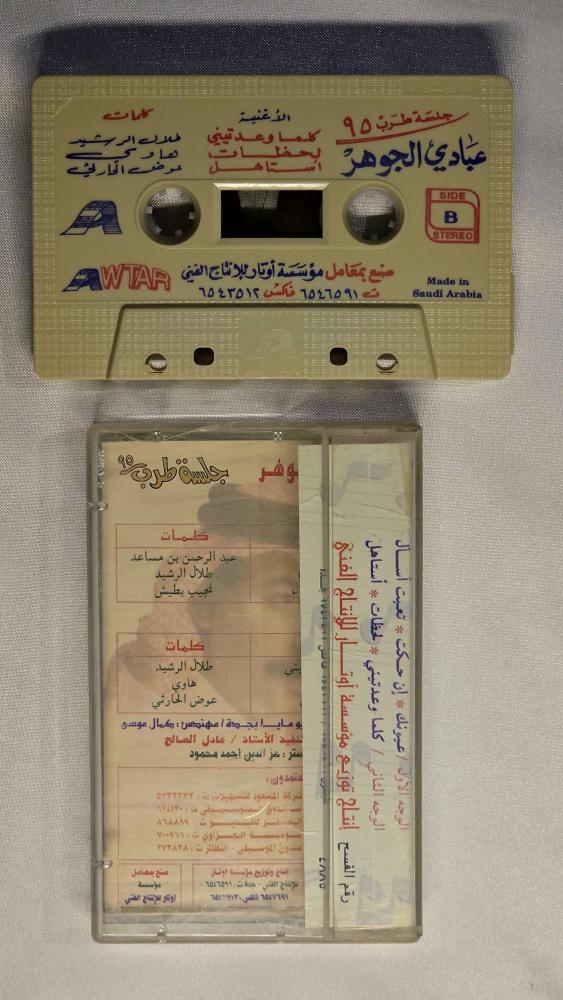 جلسة طرب ٩٥
عبادي الجوهر
الأغنية
كلما وعدتيني
لحظات
استاهل
كلمات
طلال الرشيد
هاوي
عوض الحارثي
SIDE
B
STEREO
AWTAR
صنع بمعامل مؤسسة أوتار للإنتاج الفني
ت ٦٥٤٦٥٩١ فاكس ٦٥٤٣٥١٢
Made in
Saudi Arabia
جلسة طرب ٩٥
كلمات
عبد الرحمن بن مساعد
طلال الرشيد
نجيب بطيش
كلمات
طلال الرشيد
هاوي
عوض الحارثي
بجدة / مهندس : كمال موسى
تنفيذ الأستاذ / عادل الصالح
عز الدين أحمد محمود
إنتاج وتوزيع مؤسسة أوتار
للإنتاج الفني - جدة ت : ٦٥٤٦٥٩١
صنع بمعامل
مؤسسة
أوتار للإنتاج الفني
الوجه الأول / عيونك * إن حكت * تعبت أسأل
الوجه الثاني / كلما وعدتيني * لحظات * أستاهل
إنتاج توزيع مؤسسة أوتار للإنتاج الفني
رقم الفسح